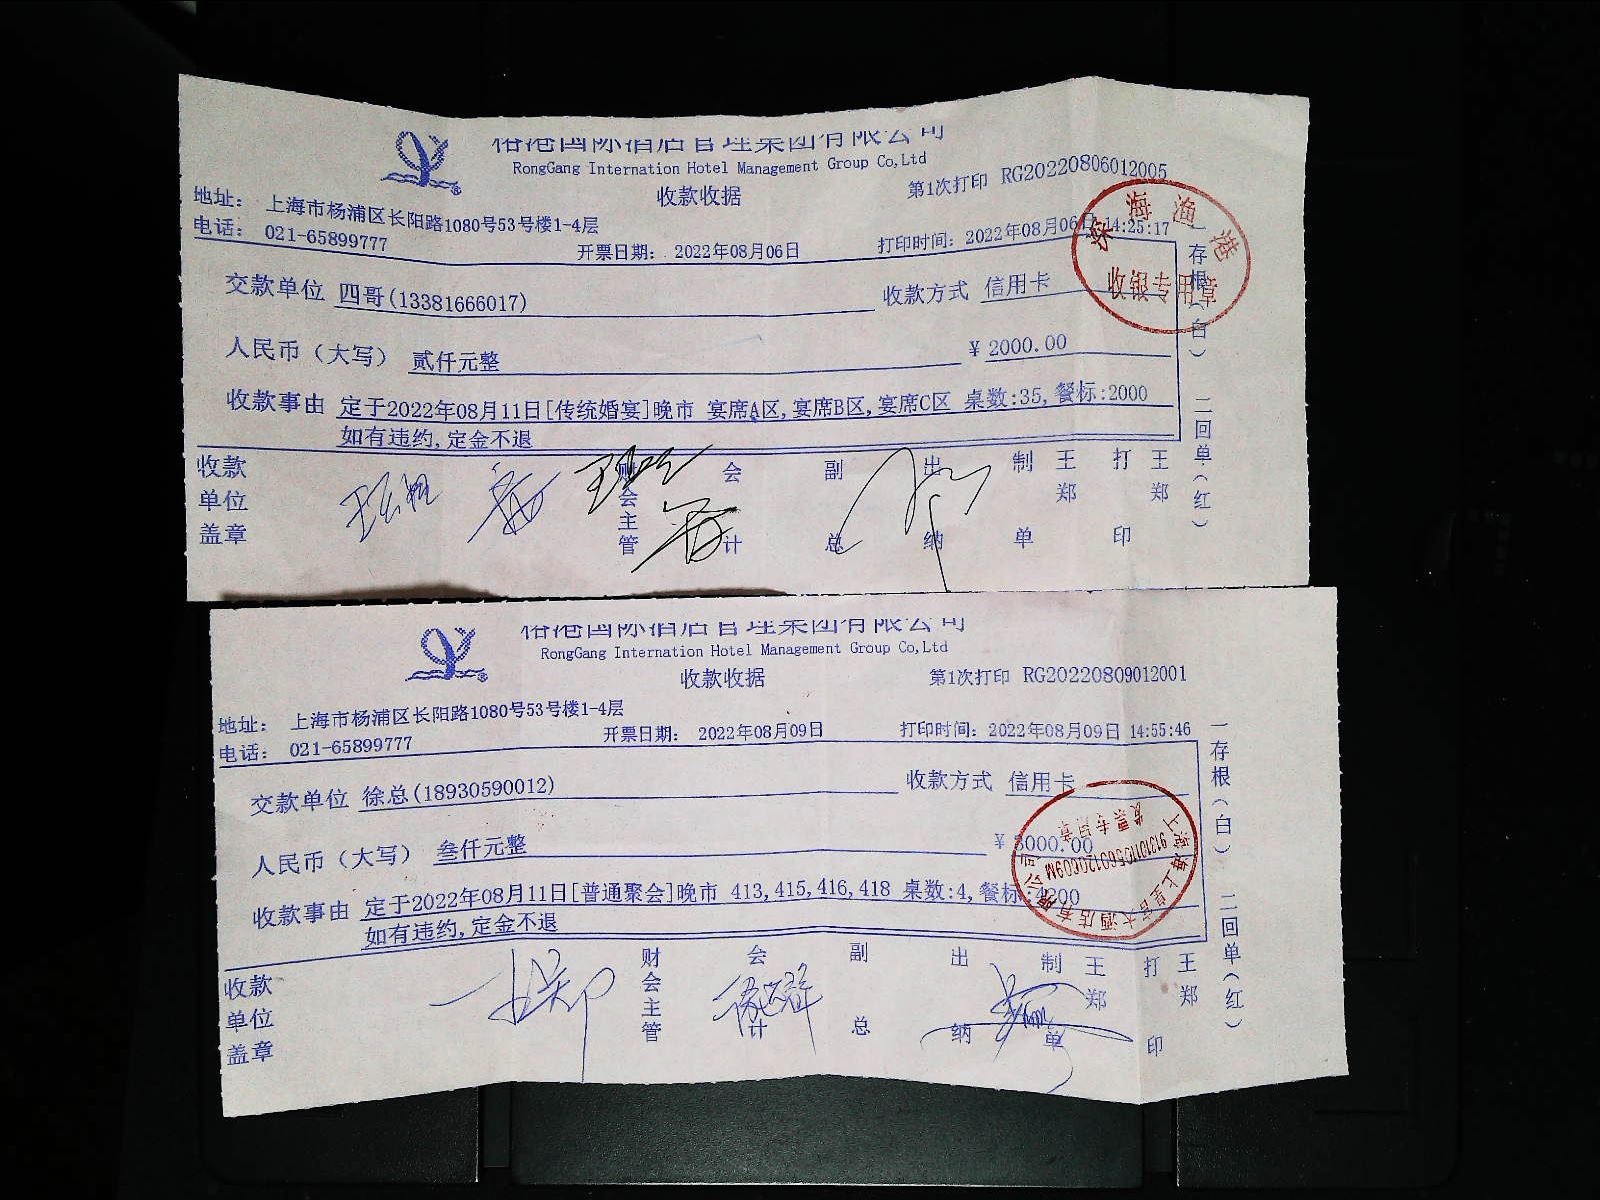 俗港国际酒店管理集团有限公司
RongGang Internation Hotel Management Group Co,Ltd
收款收据
第1次打印 RG20220806012005
地址: 上海市杨浦区长阳路1080号53号楼1-4层
电话: 021-65899777
开票日期: 2022年08月06日
打印时间: 2022年08月06日 14:25:17
深海渔港
收银专用章
交款单位 四哥(13381666017)
收款方式 信用卡
人民币(大写) 贰仟元整
¥ 2000.00
收款事由 定于2022年08月11日[传统婚宴]晚市 宴席A区,宴席B区,宴席C区 桌数:35,餐标:2000
如有违约,定金不退
收款单位盖章
财会主管
会计
副总
出纳
制单
王郑
打印
王郑
一存根(白) 二回单(红)
俗港国际酒店管理集团有限公司
RongGang Internation Hotel Management Group Co,Ltd
收款收据
第1次打印 RG20220809012001
地址: 上海市杨浦区长阳路1080号53号楼1-4层
电话: 021-65899777
开票日期: 2022年08月09日
打印时间: 2022年08月09日 14:55:46
交款单位 徐总(18930590012)
收款方式 信用卡
人民币(大写) 叁仟元整
¥ 3000.00
发票专用章
收款事由 定于2022年08月11日[普通聚会]晚市 413,415,416,418 桌数:4,餐标:4200
如有违约,定金不退
收款单位盖章
财会主管
会计
副总
出纳
制单
王郑
打印
王郑
一存根(白) 二回单(红)